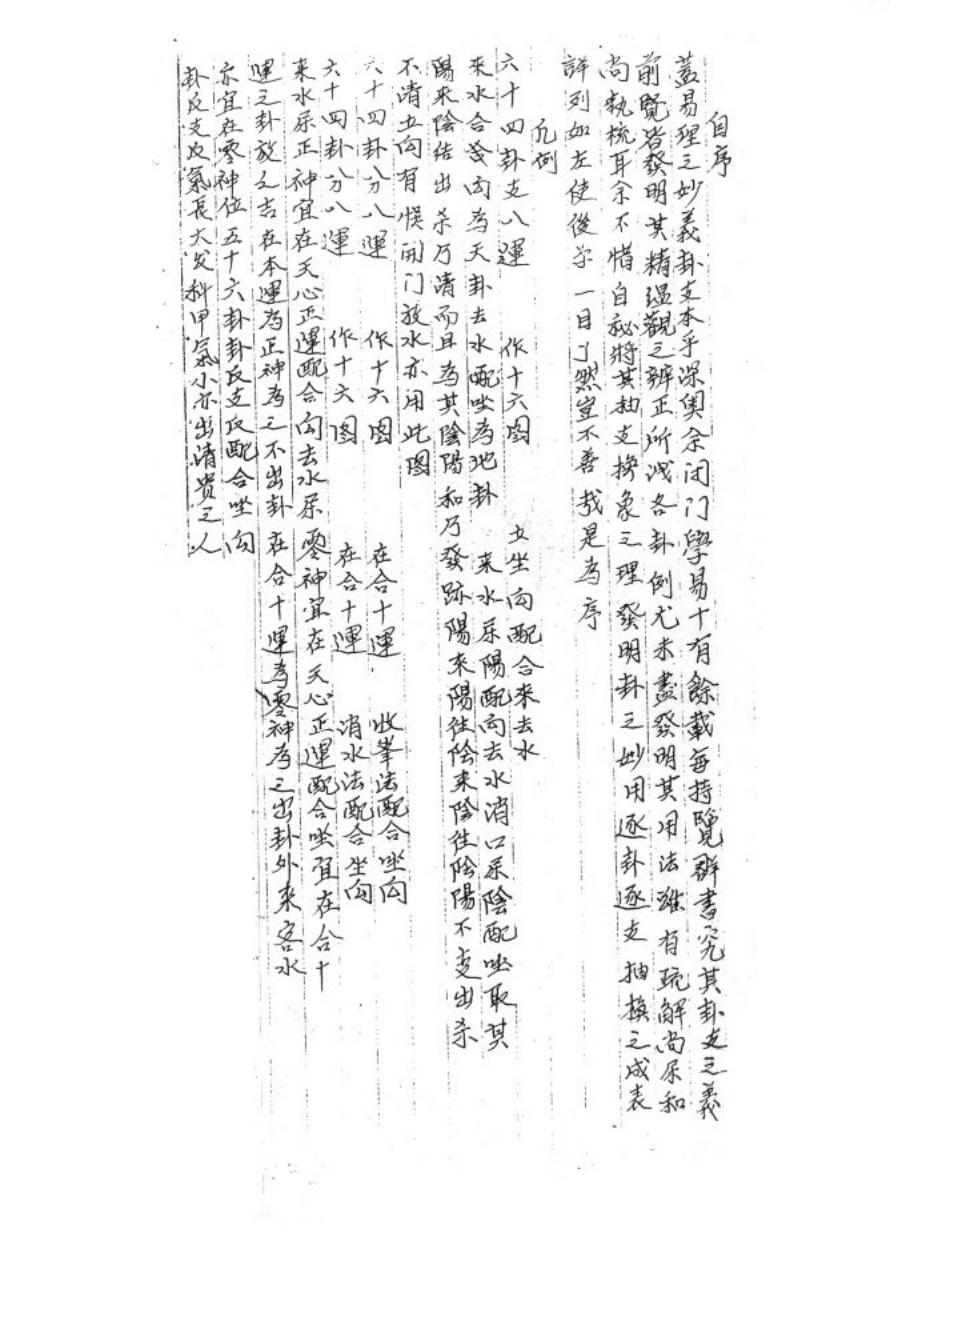 自序
蓋易理之妙義卦支本乎深奧余闭门學易十有餘載每持覽群書究其卦爻之義
前覽皆發明其精蕴觀之辨正所浅各卦例尤未盡發明其用法雖有疏解尚屈和
尚執梳耳余不惜自秘將其抽支換象之理發明卦之妙用逐卦逐支抽換之成表
詳列如左使後学一目了然豈不善哉是為序
凡例
六十四卦支八運 作十六圖 立坐向配合来去水
来水合葢向為天卦去水配坐為地卦 来水屈陽配向去水消口屈陰配坐取其
陽来陰结出杀乃清而且為其陰陽和乃發跡陽来陽往陰来陰往陰陽不变出杀
不清立向有悮開门放水亦用此圖
六十四卦分八運 作十六图 在合十運 收峯法配合坐向
六十四卦分八運 作十六图 在合十運 消水法配合坐向
来水屈正神宜在天心正運配合向去水屈零神宜在天心正運配合坐宜在合十
運之卦放之吉在本運為正神為之不出卦 在合十運為零神為之出卦外来客水
亦宜在零神位五十六卦卦反支反配合坐向
卦反支反氣長大发科甲氣小亦出清貴之人